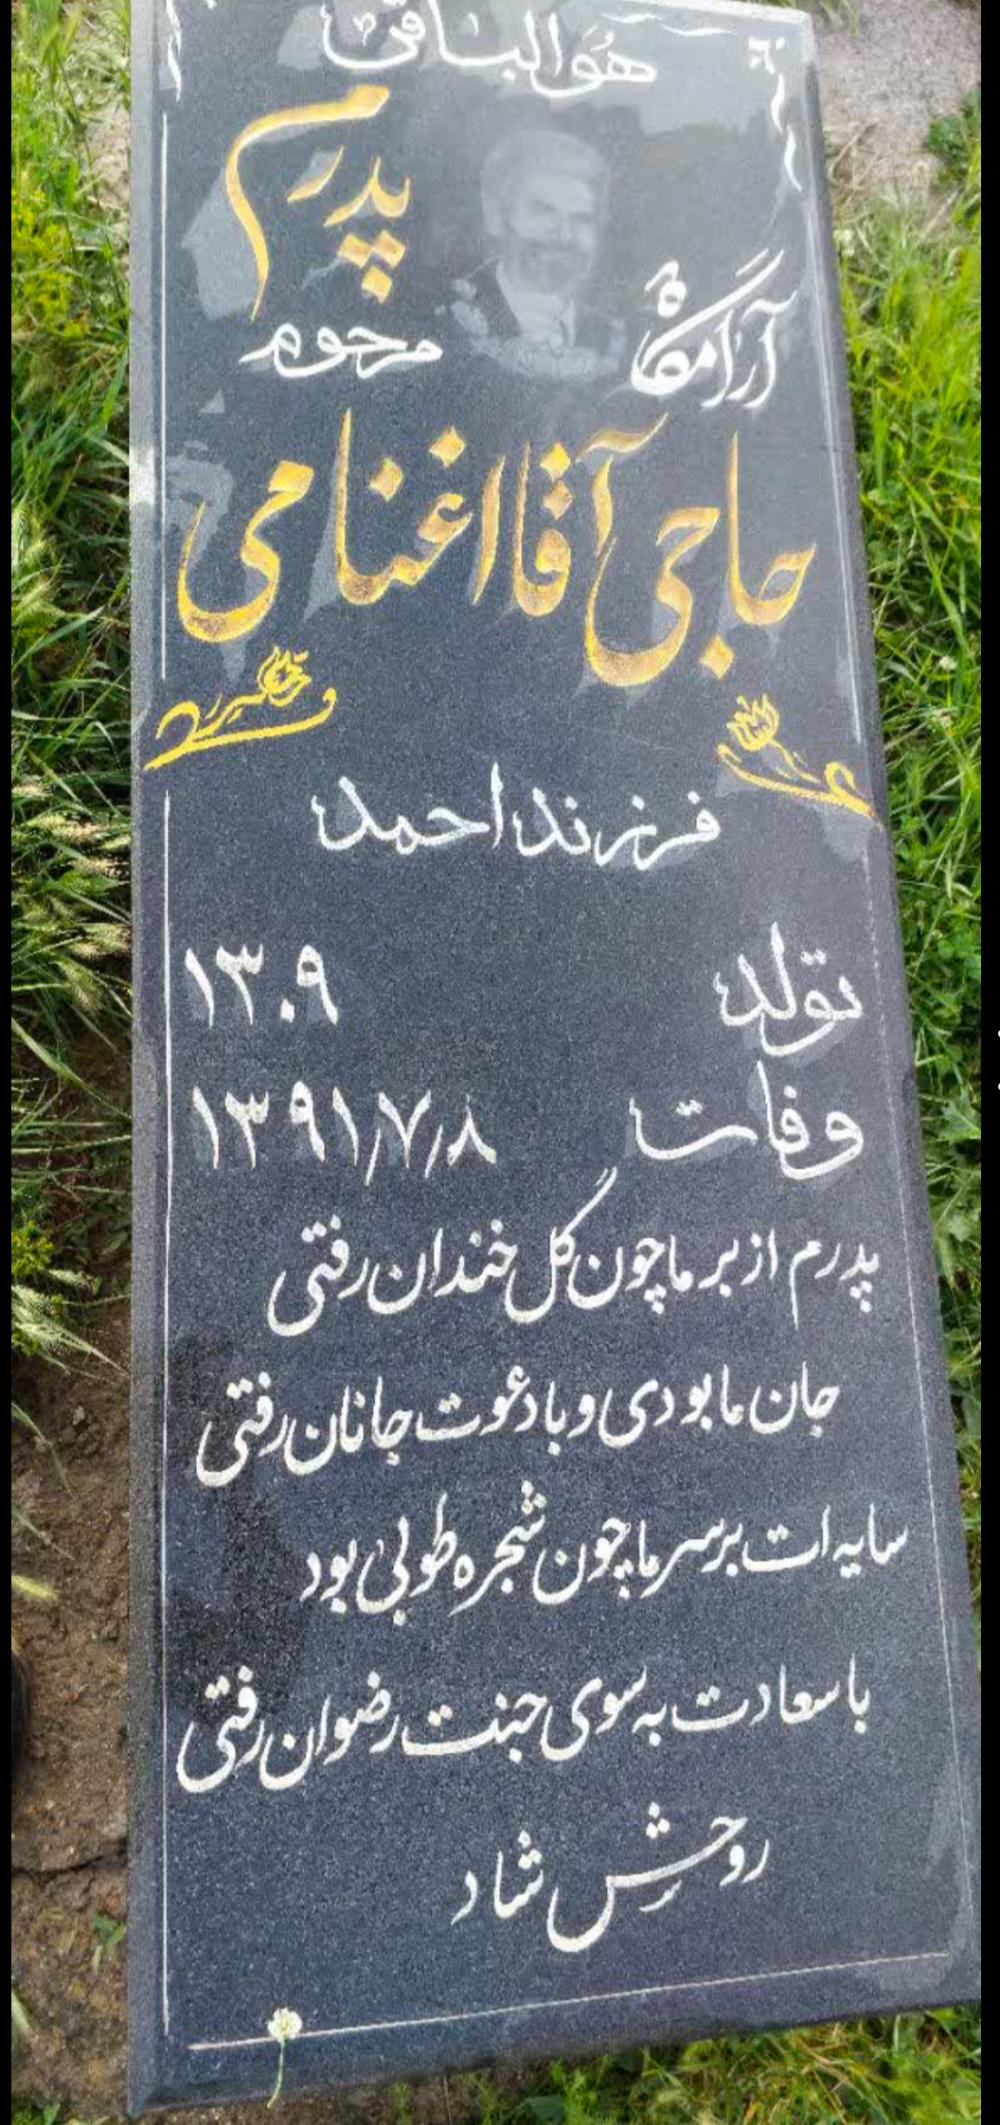 هو الباقی
آرامگاه
پدرم
مرحوم
حاجی آقا اغنامی
فرزند احمد
تولد ۱۳۰۹
وفات ۱۳۹۱/۷/۸
پدرم از بر ما چون گل خندان رفتی
جان ما بودی و با دعوت جانان رفتی
سایه ات بر سر ما چون شجره طوبی بود
با سعادت به سوی جنت رضوان رفتی
روحش شاد